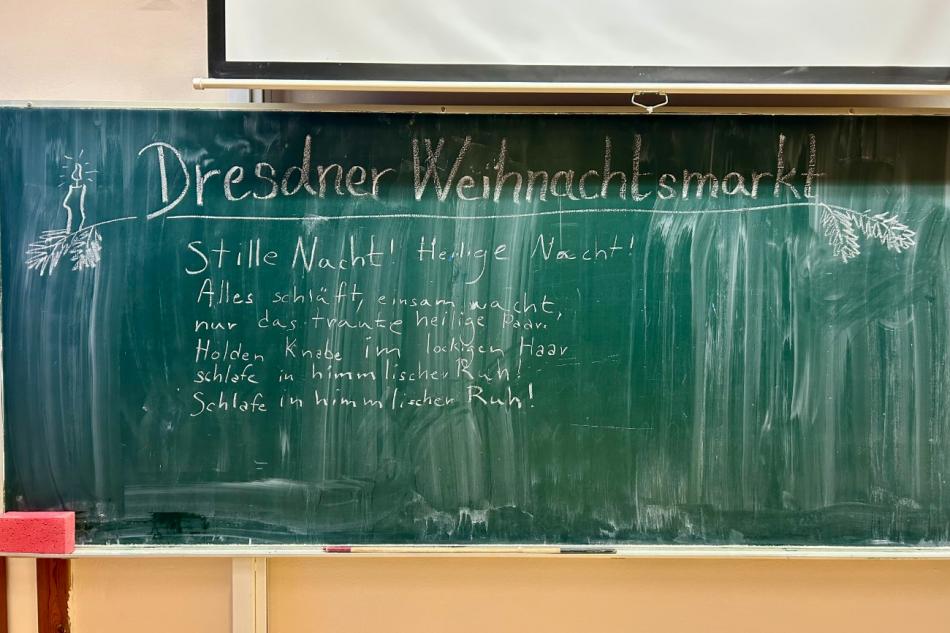 Dresdner Weihnachtsmarkt
Stille Nacht! Heilige Nacht!
Alles schläft, einsam wacht,
nur das traute heilige Paar.
Holden Knabe im lockigen Haar
schlafe in himmlischer Ruh!
Schlafe in himmlischer Ruh!